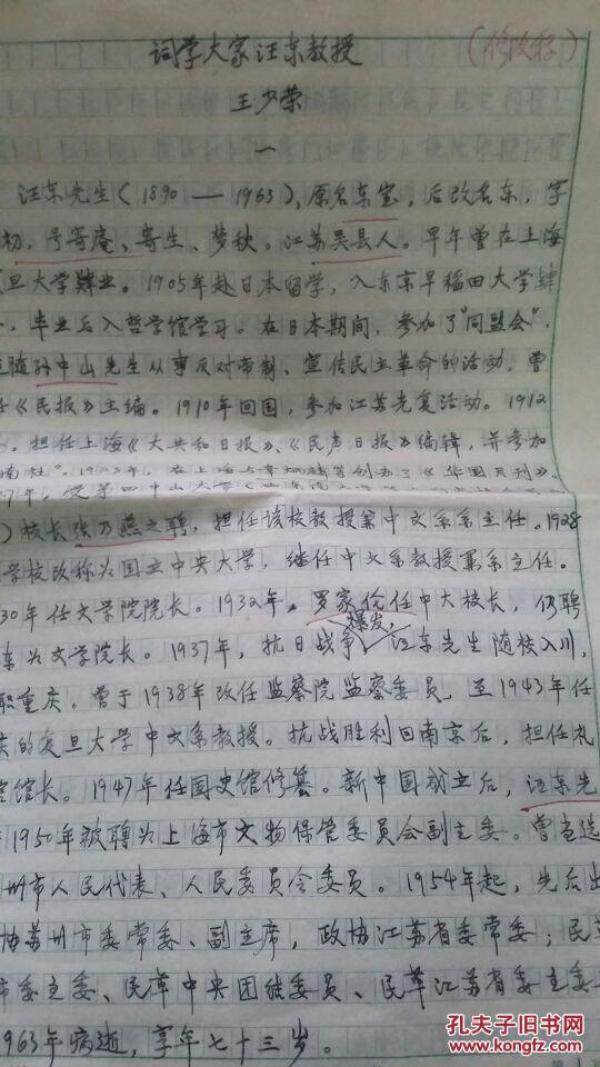 词学大家汪东教授
（修改稿）
王少荣
一
汪东先生（1890—1963），原名东宝，后改名东，字
初，号寄庵、寄生、梦秋。江苏吴县人。早年曾在上海
旦大学肄业。1905年赴日本留学，入东京早稻田大学肄
，毕业后入哲学馆学习。在日本期间，参加了“同盟会”，
随孙中山先生从事反对帝制、宣传民主革命的活动，曾
任《民报》主编。1910年回国，参加江苏光复活动。1912
，担任上海《大共和日报》、《民声日报》编辑，并参加
南社”。1923年，在上海与章炳麟等创办了《华国月刊》。
）校长张乃燕之聘，担任该校教授兼中文系系主任。1928
学校改称为国立中央大学，继任中文系教授兼系主任。
30年任文学院院长。1932年，罗家伦任中大校长，仍聘
东为文学院长。1937年，抗日战争爆发，汪东先生随校入川，
职重庆。曾于1938年改任监察院监察委员，至1943年任
的复旦大学中文系教授。抗战胜利回南京后，担任礼
馆长。1947年任国史馆修纂。新中国成立后，汪东先
1950年被聘为上海市文物保管委员会副主委。曾当选
州市人民代表、人民委员会委员。1954年起，先后出
协苏州市委常委、副主席，政协江苏省委常委；民革
市委主委、民革中央团结委员、民革江苏省委主委
963年病逝，享年七十三岁。
孔夫子旧书网
www.kongfz.com